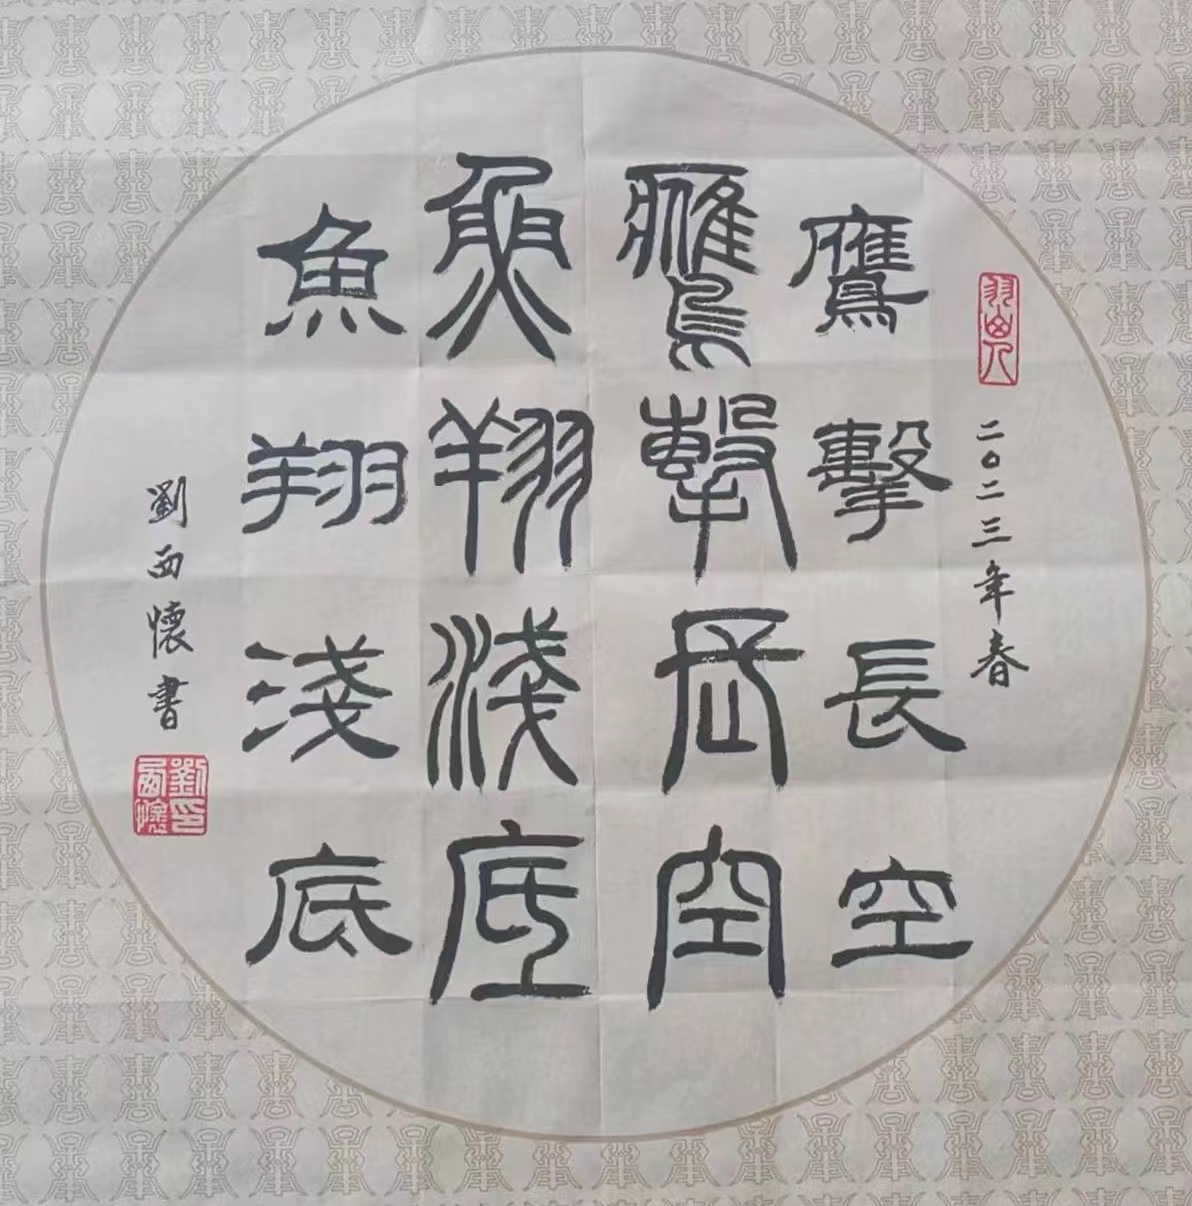 二〇二三年春
鷹擊長空
鷹擊長空
魚翔淺底
魚翔淺底
劉西懷書